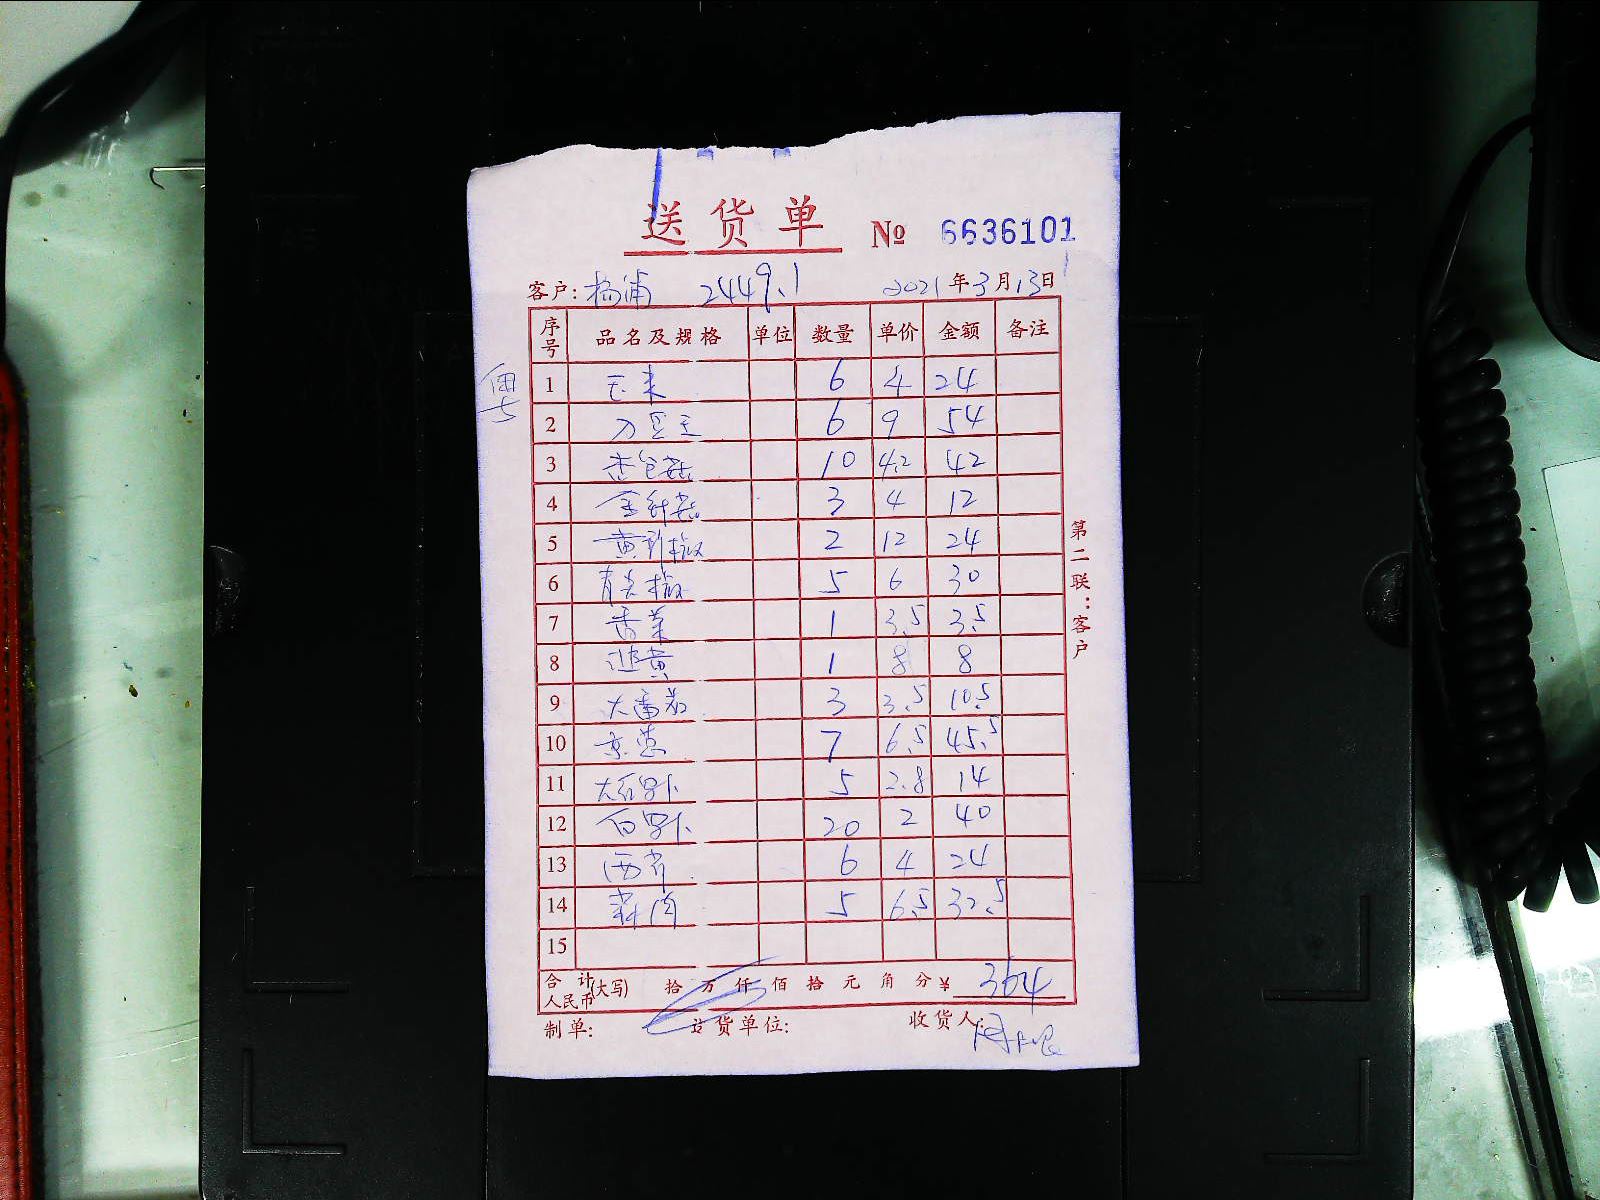 送货单 № 6636101
客户: 杨浦 2449.1 2021年3月13日
序号 品名及规格 单位 数量 单价 金额 备注
1 玉米 6 4 24
2 刀豆 6 9 54
3 杏包菇 10 4.2 42
4 金针菇 3 4 12
5 黄彩椒 2 12 24
6 青尖椒 5 6 30
7 香菜 1 3.5 3.5
8 韭黄 1 8 8
9 大番茄 3 3.5 10.5
10 京葱 7 6.5 45.5
11 大红罗卜 5 2.8 14
12 白罗卜 20 2 40
13 西芹 6 4 24
14 5 6.5 32.5
15
合计人民币(大写) 拾万仟佰拾元角分 ¥ 364
制单: 送货单位: 收货人:
第二联:客户